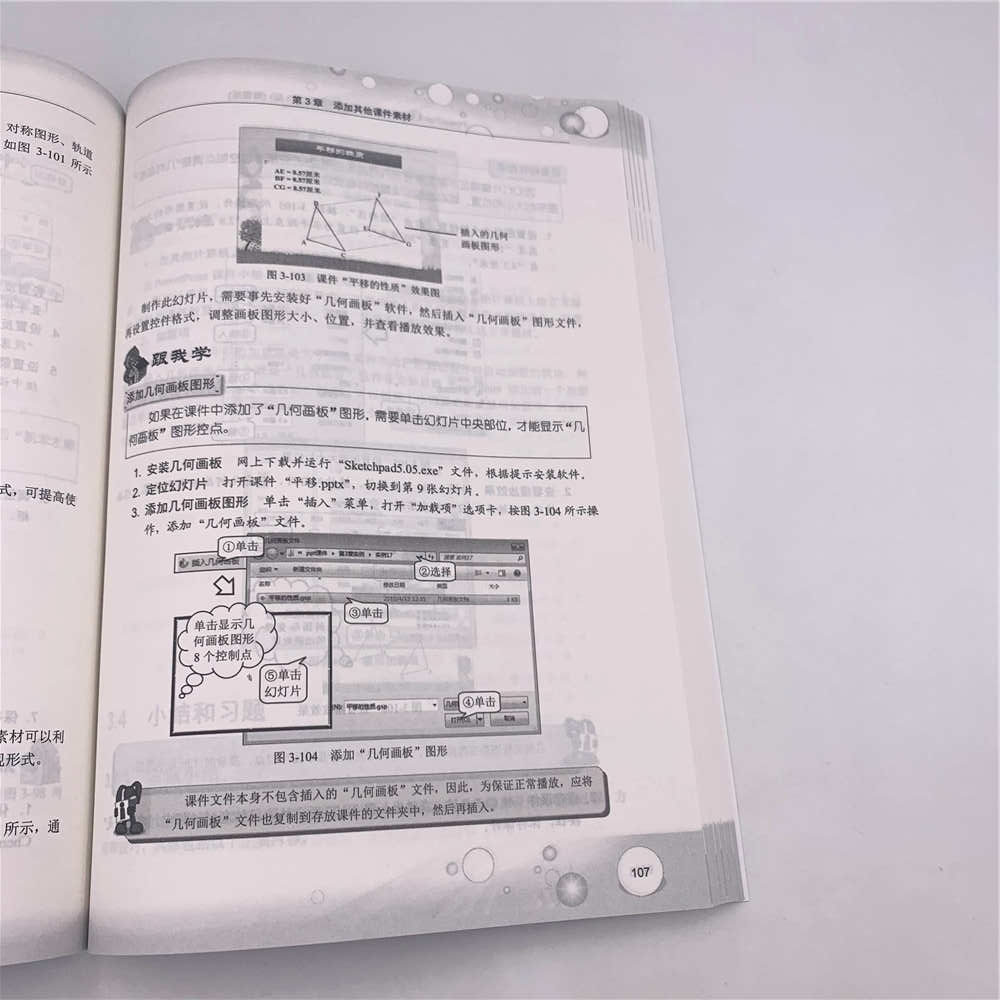 对称图形、轨道
如图 3-101 所示
式，可提高使
素材可以利
现形式。
所示，通
第 3 章 添加其他课件素材
平移的性质
AE = 8.57厘米
BF = 8.57厘米
CG = 8.57厘米
B
F
A
E
C
G
插入的几何
画板图形
图 3-103 课件“平移的性质”效果图
制作此幻灯片，需要事先安装好“几何画板”软件，然后插入“几何画板”图形文件，
再设置控件格式，调整画板图形大小、位置，并查看播放效果。
跟我学
添加几何画板图形
如果在课件中添加了“几何画板”图形，需要单击幻灯片中央部位，才能显示“几
何画板”图形控点。
1. 安装几何画板 网上下载并运行“Sketchpad5.05.exe”文件，根据提示安装软件。
2. 定位幻灯片 打开课件“平移.pptx”，切换到第 9 张幻灯片。
3. 添加几何画板图形 单击“插入”菜单，打开“加载项”选项卡，按图 3-104 所示操
作，添加“几何画板”文件。
①单击
插入几何画板
几何画板文件
ppt课件 第3章实例 实例17
搜索 实例17
②选择
组织 新建文件夹
名称 修改日期 类型 大小
平移的性质.gsp 2015/4/13 12:35 几何画板文档 1 KB
③单击
单击显示几
何画板图形
8 个控制点
⑤单击
幻灯片
(N): 平移的性质.gsp
④单击
打开(O) 取消
图 3-104 添加“几何画板”图形
课件文件本身不包含插入的“几何画板”文件，因此，为保证正常播放，应将
“几何画板”文件也复制到存放课件的文件夹中，然后再插入。
107